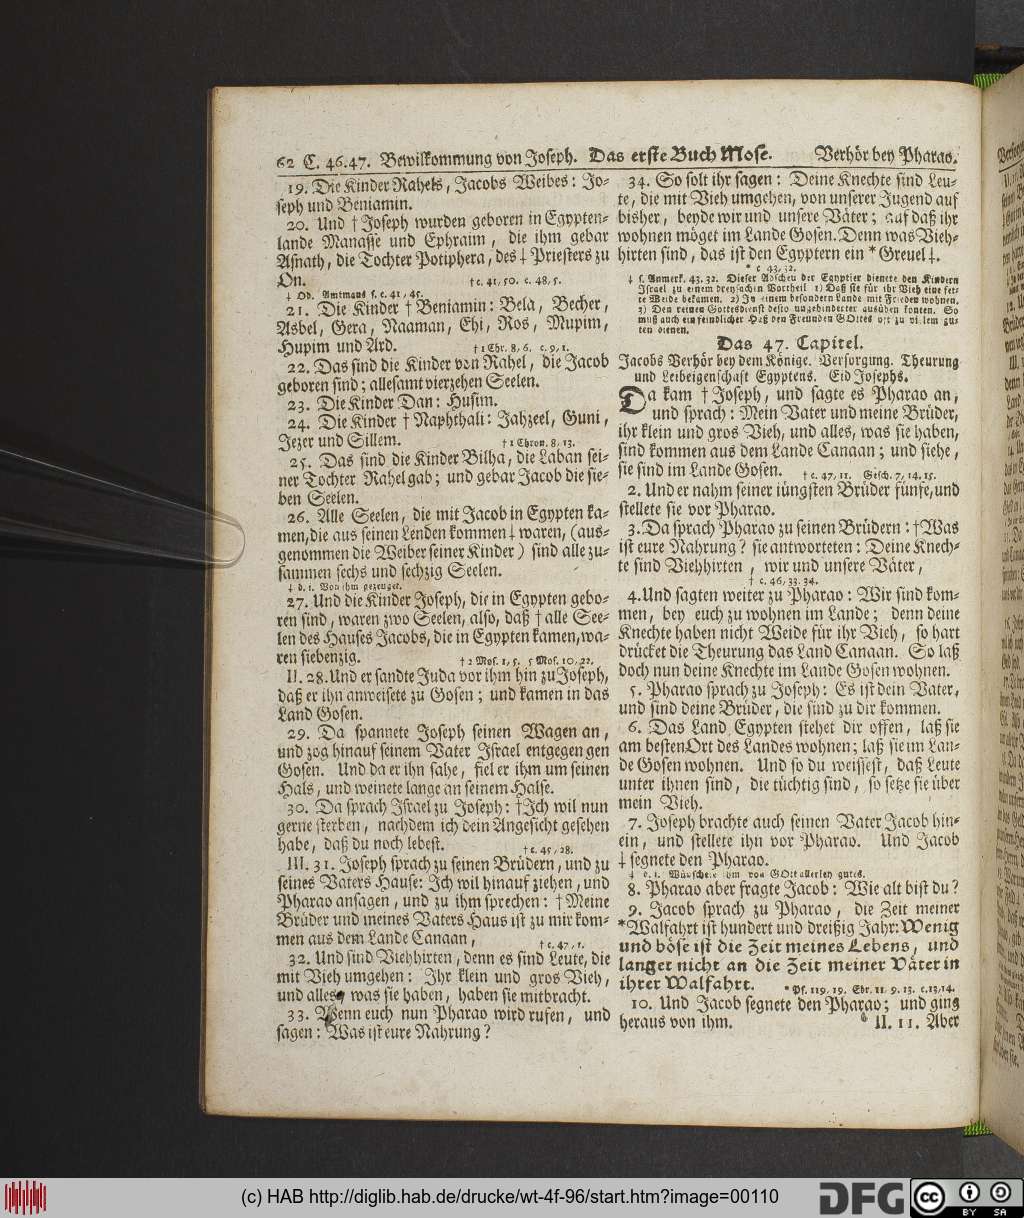 62 C. 46.47. Bewillkommung von Joseph. Das erste Buch Mose. Verhör bey Pharao.
19. Die Kinder Rahels, Jacobs Weibes: Jo-
seph und Benjamin.
20. Und † Joseph wurden geboren in Egypten-
lande Manasse und Ephraim, die ihm gebar
Asnath, die Tochter Potiphera, des ‡ Priesters zu
On. † c. 41, 50. c. 48, 5.
‡ Od. Amtmans s. c. 41, 45.
21. Die Kinder † Benjamin: Bela, Becher,
Asbel, Gera, Naaman, Ehi, Ros, Mupim,
Hupim und Ard. † 1 Chr. 8, 6. c. 9, 1.
22. Das sind die Kinder von Rahel, die Jacob
geboren sind; allesamt vierzehen Seelen.
23. Die Kinder Dan: Husim.
24. Die Kinder † Naphthali: Jahzeel, Guni,
Jezer und Sillem. † 1 Chron. 8, 13.
25. Das sind die Kinder Bilha, die Laban sei-
ner Tochter Rahel gab; und gebar Jacob die sie-
ben Seelen.
26. Alle Seelen, die mit Jacob in Egypten ka-
men, die aus seinen Lenden kommen ‡ waren, (aus-
genommen die Weiber seiner Kinder) sind alle zu-
sammen sechs und sechzig Seelen.
‡ d. i. Von ihm gezeuget.
27. Und die Kinder Joseph, die in Egypten gebo-
ren sind, waren zwo Seelen, also, daß † alle See-
len des Hauses Jacobs, die in Egypten kamen, wa-
ren siebenzig. † 2 Mos. 1, 5. 5 Mos. 10, 22.
II. 28. Und er sandte Juda vor ihm hin zu Joseph,
daß er ihn anweisete zu Gosen; und kamen in das
Land Gosen.
29. Da spannete Joseph seinen Wagen an,
und zog hinauf seinem Vater Israel entgegen gen
Gosen. Und da er ihn sahe, fiel er ihm um seinen
Hals, und weinete lange an seinem Halse.
30. Da sprach Israel zu Joseph: † Ich wil nun
gerne sterben, nachdem ich dein Angesicht gesehen
habe, daß du noch lebest. † c. 45, 28.
III. 31. Joseph sprach zu seinen Brüdern, und zu
seines Vaters Hause: Ich wil hinauf ziehen, und
Pharao ansagen, und zu ihm sprechen: † Meine
Brüder und meines Vaters Haus ist zu mir kom-
men aus dem Lande Canaan, † c. 47, 1.
32. Und sind Viehhirten, denn es sind Leute, die
mit Vieh umgehen: Ihr klein und gros Vieh,
und alles, was sie haben, haben sie mitbracht.
33. Wenn euch nun Pharao wird rufen, und
sagen: Was ist eure Nahrung?
34. So solt ihr sagen: Deine Knechte sind Leu-
te, die mit Vieh umgehen, von unserer Jugend auf
bisher, beyde wir und unsere Väter; auf daß ihr
wohnen möget im Lande Gosen. Denn was Vieh-
hirten sind, das ist den Egyptern ein * Greuel ‡.
* c. 43, 32.
‡ s. Anmerk. 43, 32. Dieser Abscheu der Egyptier dienete den Kindern
Israel zu einem dreyfachen Vortheil 1) Daß sie für ihr Vieh eine fet-
te Weide bekamen. 2) In einem besondern Lande mit Frieden wohnen.
3) Den reinen Gottesdienst desto ungehinderter ausüben konten. So
muß auch ein feindlicher Haß den Freunden GOttes oft zu vielem gu-
ten dienen.
Das 47. Capitel.
Jacobs Verhör bey dem Könige. Versorgung. Theurung
und Leibeigenschaft Egyptens. Eid Josephs.
Da kam † Joseph, und sagte es Pharao an,
und sprach: Mein Vater und meine Brüder,
ihr klein und gros Vieh, und alles, was sie haben,
sind kommen aus dem Lande Canaan; und siehe,
sie sind im Lande Gosen. † c. 47, 11. Gesch. 7, 14. 15.
2. Und er nahm seiner iüngsten Brüder fünfe, und
stellete sie vor Pharao.
3. Da sprach Pharao zu seinen Brüdern: † Was
ist eure Nahrung? sie antworteten: Deine Knech-
te sind Viehhirten, wir und unsere Väter,
† c. 46, 33. 34.
4. Und sagten weiter zu Pharao: Wir sind kom-
men, bey euch zu wohnen im Lande; denn deine
Knechte haben nicht Weide für ihr Vieh, so hart
drücket die Theurung das Land Canaan. So laß
doch nun deine Knechte im Lande Gosen wohnen.
5. Pharao sprach zu Joseph: Es ist dein Vater,
und sind deine Brüder, die sind zu dir kommen.
6. Das Land Egypten stehet dir offen, laß sie
am besten Ort des Landes wohnen; laß sie im Lan-
de Gosen wohnen. Und so du weissest, daß Leute
unter ihnen sind, die tüchtig sind, so setze sie über
mein Vieh.
7. Joseph brachte auch seinen Vater Jacob hin-
ein, und stellete ihn vor Pharao. Und Jacob
‡ segnete den Pharao.
‡ d. i. Wünschete ihm von GOtt allerley gutes.
8. Pharao aber fragte Jacob: Wie alt bist du?
9. Jacob sprach zu Pharao, die Zeit meiner
* Walfahrt ist hundert und dreißig Jahr: Wenig
und böse ist die Zeit meines Lebens, und
langet nicht an die Zeit meiner Väter in
ihrer Walfahrt. * Ps. 119, 19. Ebr. 11, 9. 13. c. 13, 14.
10. Und Jacob segnete den Pharao; und ging
heraus von ihm. II. 11. Aber
(c) HAB http://diglib.hab.de/drucke/wt-4f-96/start.htm?image=00110
DFG
cc
BY SA